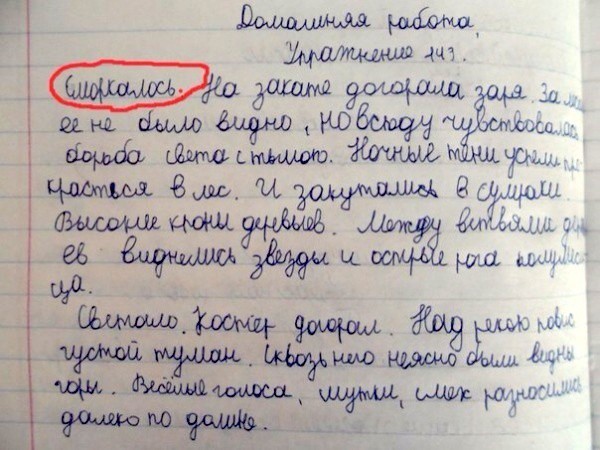 Домашняя работа
Упражнение 143.
Сморкалось. На закате догорала заря. За
ее не было видно, но всюду чувствовалась
борьба света с тьмою. Ночные тени успели про
красться в лес. И закутались в сумраки
Высокие кроны деревьев. Между ветвями дер
ев виднелись звезды и острые рога полумеся
ца.
Светало. Костёр догорал. Над рекою повис
густой туман. Сквозь него неясно были видны
горы. Весёлые голоса, шутки, смех разносились
далеко по долине.